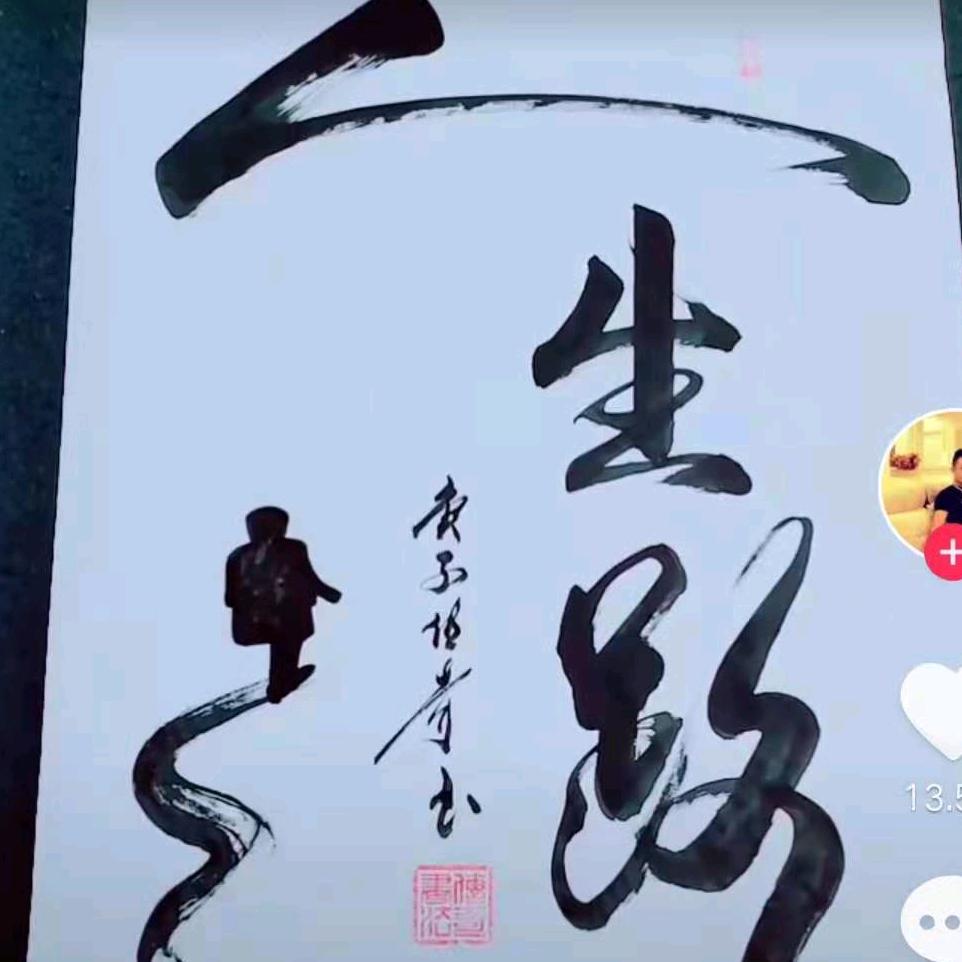 人生路
庚子书
書法
13.5